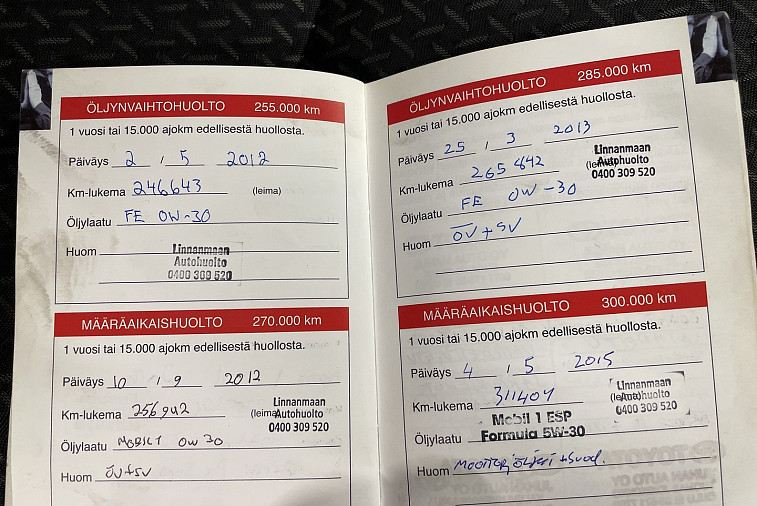 ÖLJYNVAIHTOHUOLTO 255.000 km
1 vuosi tai 15.000 ajokm edellisestä huollosta.
Päiväys 2 / 5 2012
Km-lukema 246643 (leima)
Öljylaatu FE 0W-30
Huom
Linnanmaan
Autohuolto
0400 309 520
MÄÄRÄAIKAISHUOLTO 270.000 km
1 vuosi tai 15.000 ajokm edellisestä huollosta.
Päiväys 10 / 9 2012
Km-lukema 256942 (leima)
Linnanmaan
Autohuolto
0400 309 520
Öljylaatu MOBIL 1 0W30
Huom ÖV+SV
ÖLJYNVAIHTOHUOLTO 285.000 km
1 vuosi tai 15.000 ajokm edellisestä huollosta.
Päiväys 25 / 3 2013
Km-lukema 265842 (leima)
Linnanmaan
Autohuolto
0400 309 520
Öljylaatu FE 0W-30
Huom ÖV+SV
MÄÄRÄAIKAISHUOLTO 300.000 km
1 vuosi tai 15.000 ajokm edellisestä huollosta.
Päiväys 4 / 5 2015
Km-lukema 311404 (leima)
Linnanmaan
Autohuolto
0400 309 520
Öljylaatu Mobil 1 ESP
Formula 5W-30
Huom Moottoriöljyri + Suod.